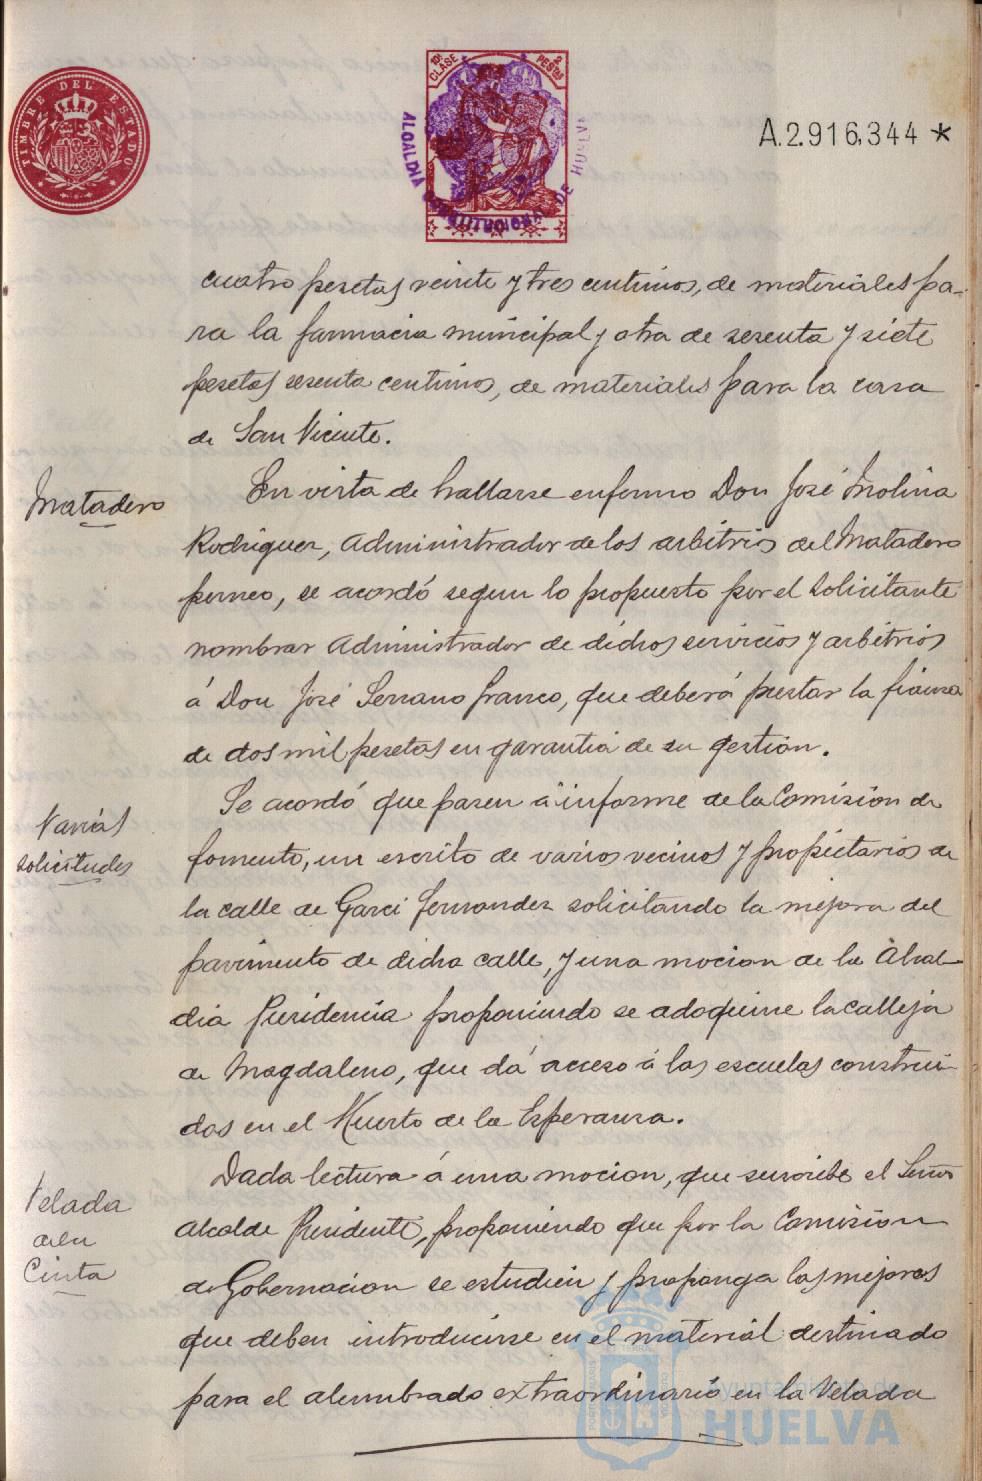 TIMBRE DEL ESTADO
10ª CLASE 2 PESTAS
ALCALDIA CONSTITUCIONAL DE HUELVA
A.2.916,344 *
cuatro pesetas veinte y tres centimos, de materiales pa-
ra la farmacia municipal y otra de sesenta y siete
pesetas sesenta centimos, de materiales para la casa
de San Vicente.
Matadero
En vista de hallarse enfermo Don José Molina
Rodriguez, Administrador de los arbitrios del Matadero
perneo, se acordó segun lo propuesto por el solicitante
nombrar Administrador de dichos servicios y arbitrios
á Don José Serrano Franco, que deberá prestar la fianza
de dos mil pesetas en garantia de su gestion.
Varias
solicitudes
Se acordó que pasen á informe de la Comision de
fomento, un escrito de varios vecinos y propietarios de
la calle de Garci Fernandez solicitando la mejora del
pavimento de dicha calle, y una mocion de la Alcal-
dia Presidencia proponiendo se adoquine la calleja
de Magdaleno, que dá acceso á las escuelas construi-
das en el Huerto de la Esperanza.
Velada
de la
Cinta
Dada lectura á una mocion, que suscribe el Señor
Alcalde Presidente, proponiendo que por la Comision
de Gobernacion se estudien y proponga las mejoras
que deben introducirse en el material destinado
para el alumbrado extraordinario en la Velada
Ayuntamiento de
HUELVA